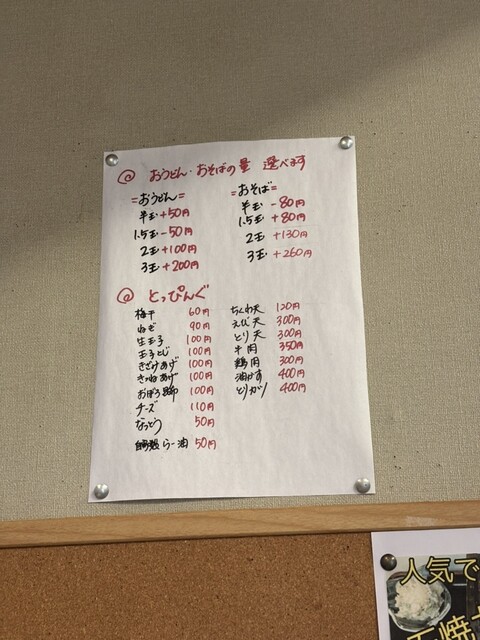 @ おうどん・おそばの量 選べます
=おうどん=
半玉 +50円
1.5玉 -50円
2玉 +100円
3玉 +200円
=おそば=
半玉 -80円
1.5玉 +80円
2玉 +130円
3玉 +260円
@ とっぴんぐ
梅干 60円
ねぎ 90円
生玉子 100円
玉子とじ 100円
きざみあげ 100円
きつねあげ 100円
おぼろ昆布 100円
チーズ 110円
なっとう 50円
自家製 らー油 50円
ちくわ天 120円
えび天 300円
とり天 300円
牛肉 350円
鶏肉 300円
油かす 400円
とりカツ 400円
人気で
石焼